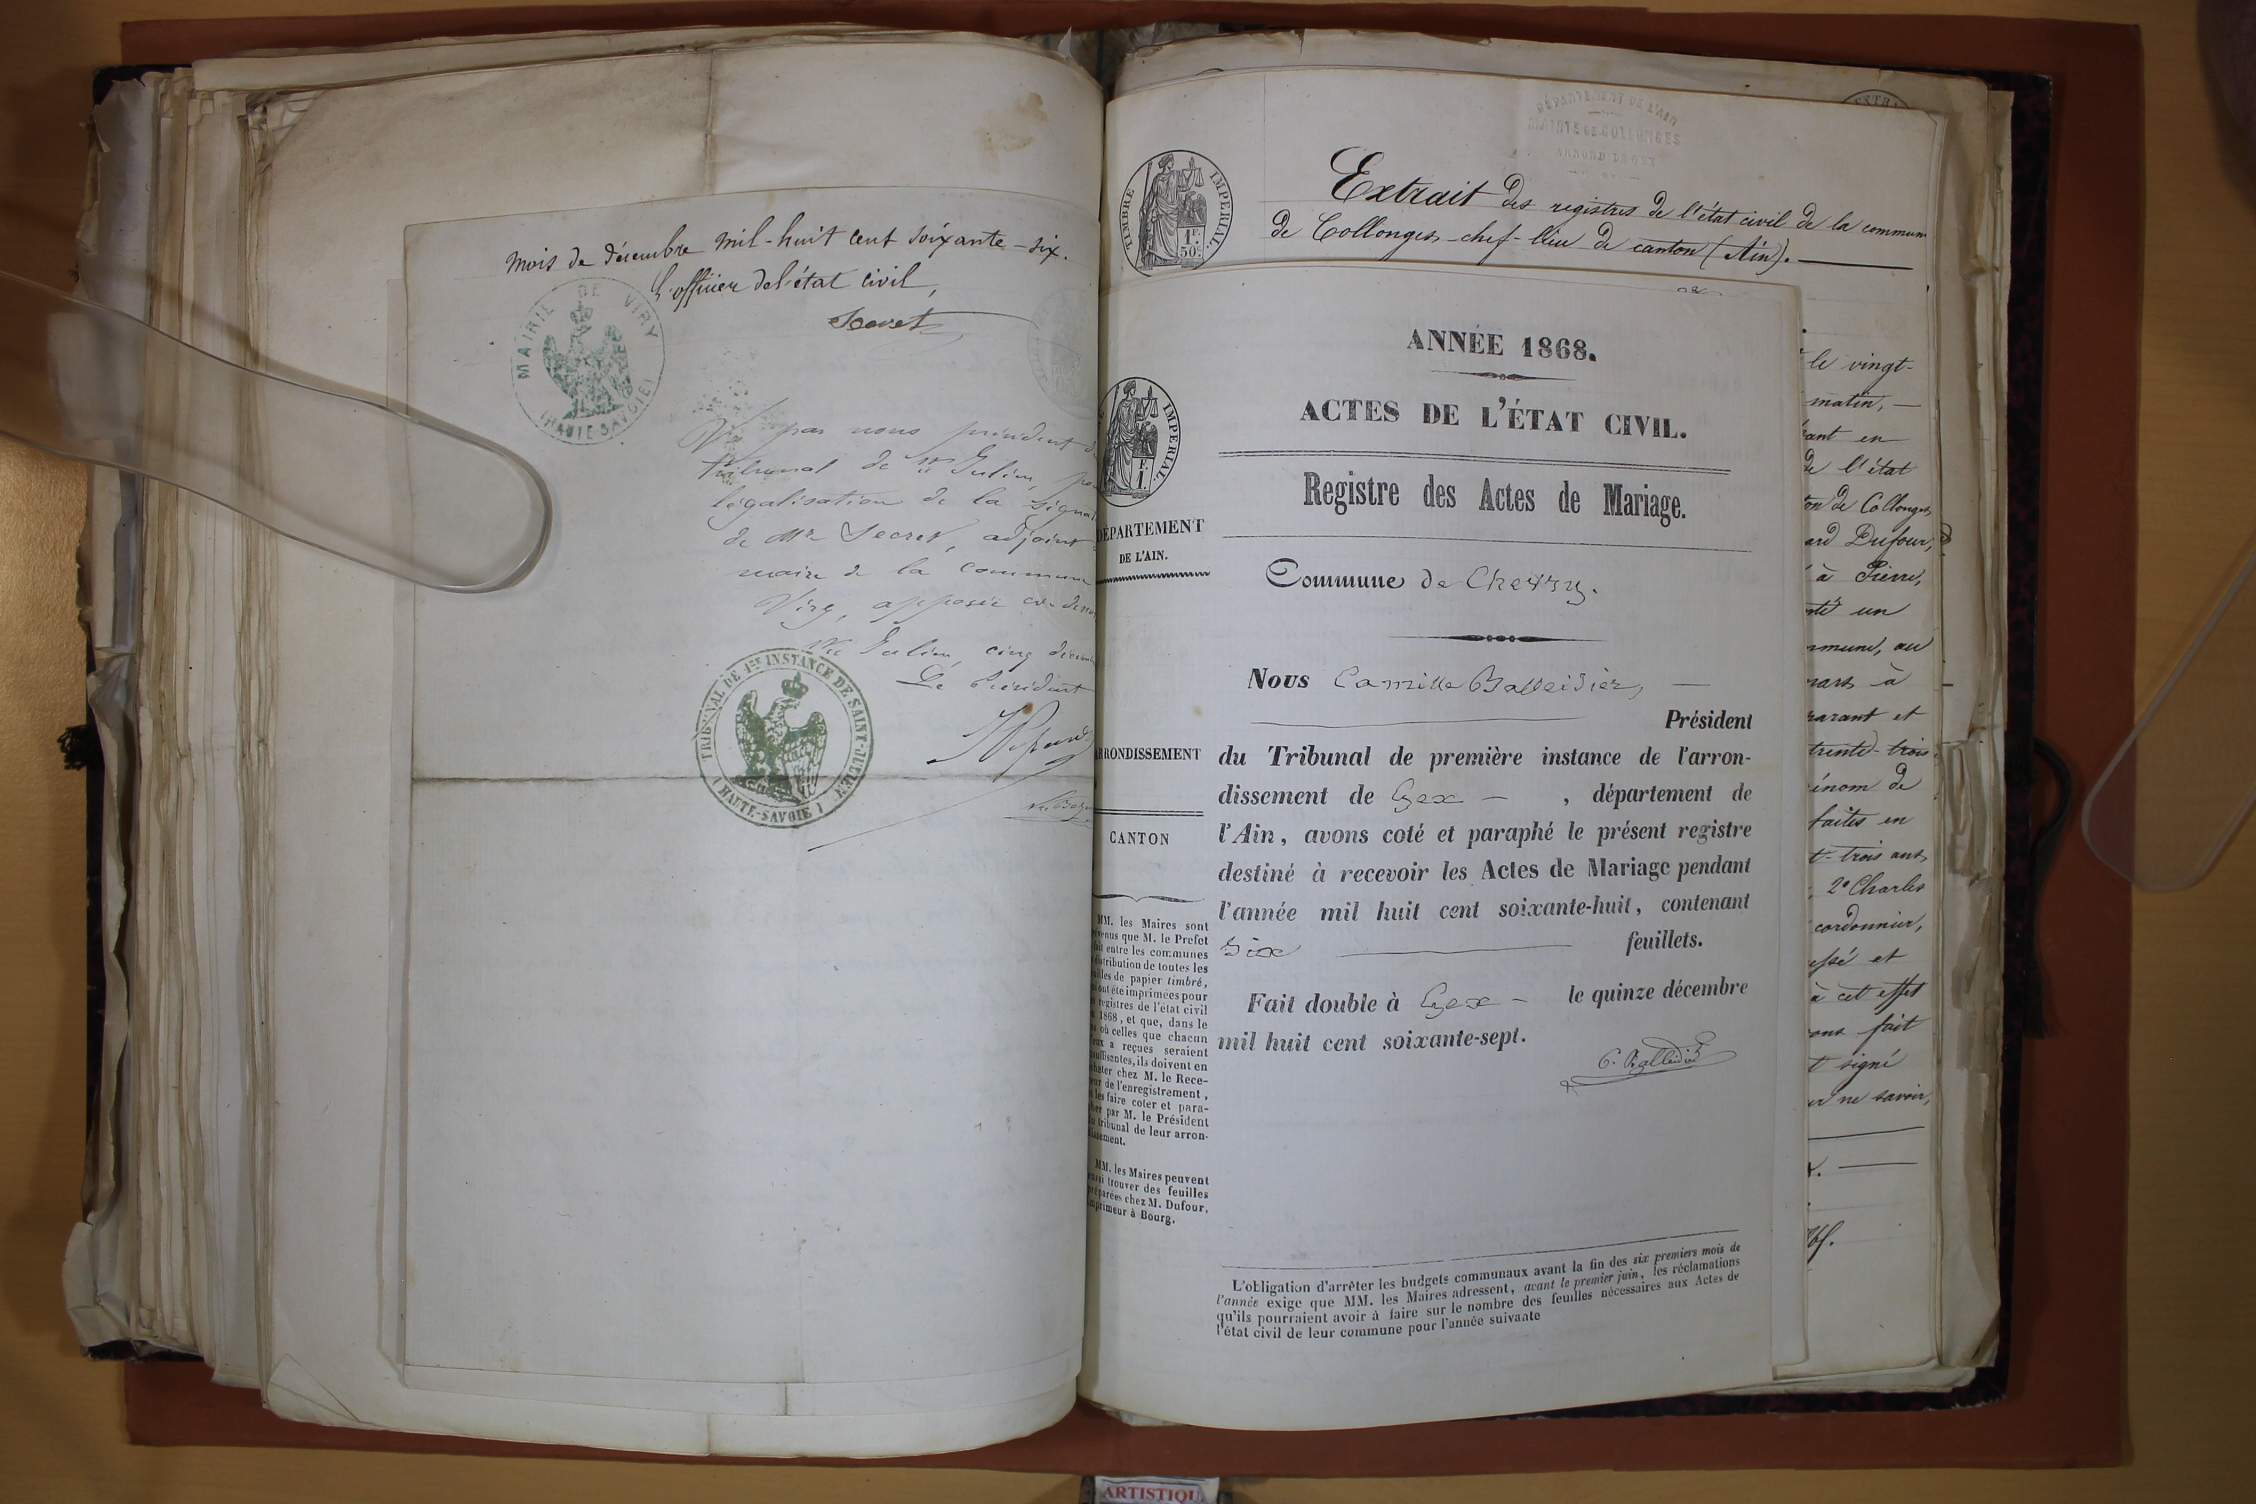 mois de décembre mil-huit cent soixante-six.
L'officier de l'état civil,
MAIRIE DE VIRY
(HAUTE-SAVOIE)
Vu par nous président
tribunal de St Julien,
légalisation de la
de Mr Secret, adjoint
maire de la commune
Viry, apposée
St Julien, cinq
Le Président
TRIBUNAL DE 1ERE INSTANCE DE SAINT-JULIEN
(HAUTE-SAVOIE)
DÉPARTEMENT DE L'AIN
MAIRIE DE COLLONGES
TIMBRE IMPERIAL
1F. 50c.
Extrait des registres de l'état civil de la commune
de Collonges-chef-lieu de canton (Ain).
ANNÉE 1868.
ACTES DE L'ÉTAT CIVIL.
Registre des Actes de Mariage.
IMPERIAL
F. 1.
DÉPARTEMENT
DE L'AIN.
Commune de Chevry.
Nous Camille Balleidier,
Président
ARRONDISSEMENT
du Tribunal de première instance de l'arron-
dissement de Gex , département de
l'Ain, avons coté et paraphé le présent registre
destiné à recevoir les Actes de Mariage pendant
l'année mil huit cent soixante-huit, contenant
six feuillets.
Fait double à Gex le quinze décembre
mil huit cent soixante-sept.
C. Balleidier
CANTON
MM. les Maires sont
que M. le Prefet
entre les communes
distribution de toutes les
de papier timbré,
ont été imprimées pour
registres de l'état civil
1868, et que, dans le
où celles que chacun
a reçues seraient
ils doivent en
chez M. le Rece-
de l'enregistrement,
les faire coter et para-
par M. le Président
tribunal de leur arron-
MM. les Maires peuvent
trouver des feuilles
chez M. Dufour,
à Bourg.
L'obligation d'arrêter les budgets communaux avant la fin des six premiers mois de
l'année exige que MM. les Maires adressent, avant le premier juin, les réclamations
qu'ils pourraient avoir à faire sur le nombre des feuilles nécessaires aux Actes de
l'état civil de leur commune pour l'année suivante
le vingt-
matin,
en
de l'état
de Collonges
Dufour,
à Pierre,
un
au
à
et
trente-trois
de
faites en
trois ans,
2° Charles
cordonnier,
et
à cet effet
fait
signé
ne savoir,
ARTISTIQU